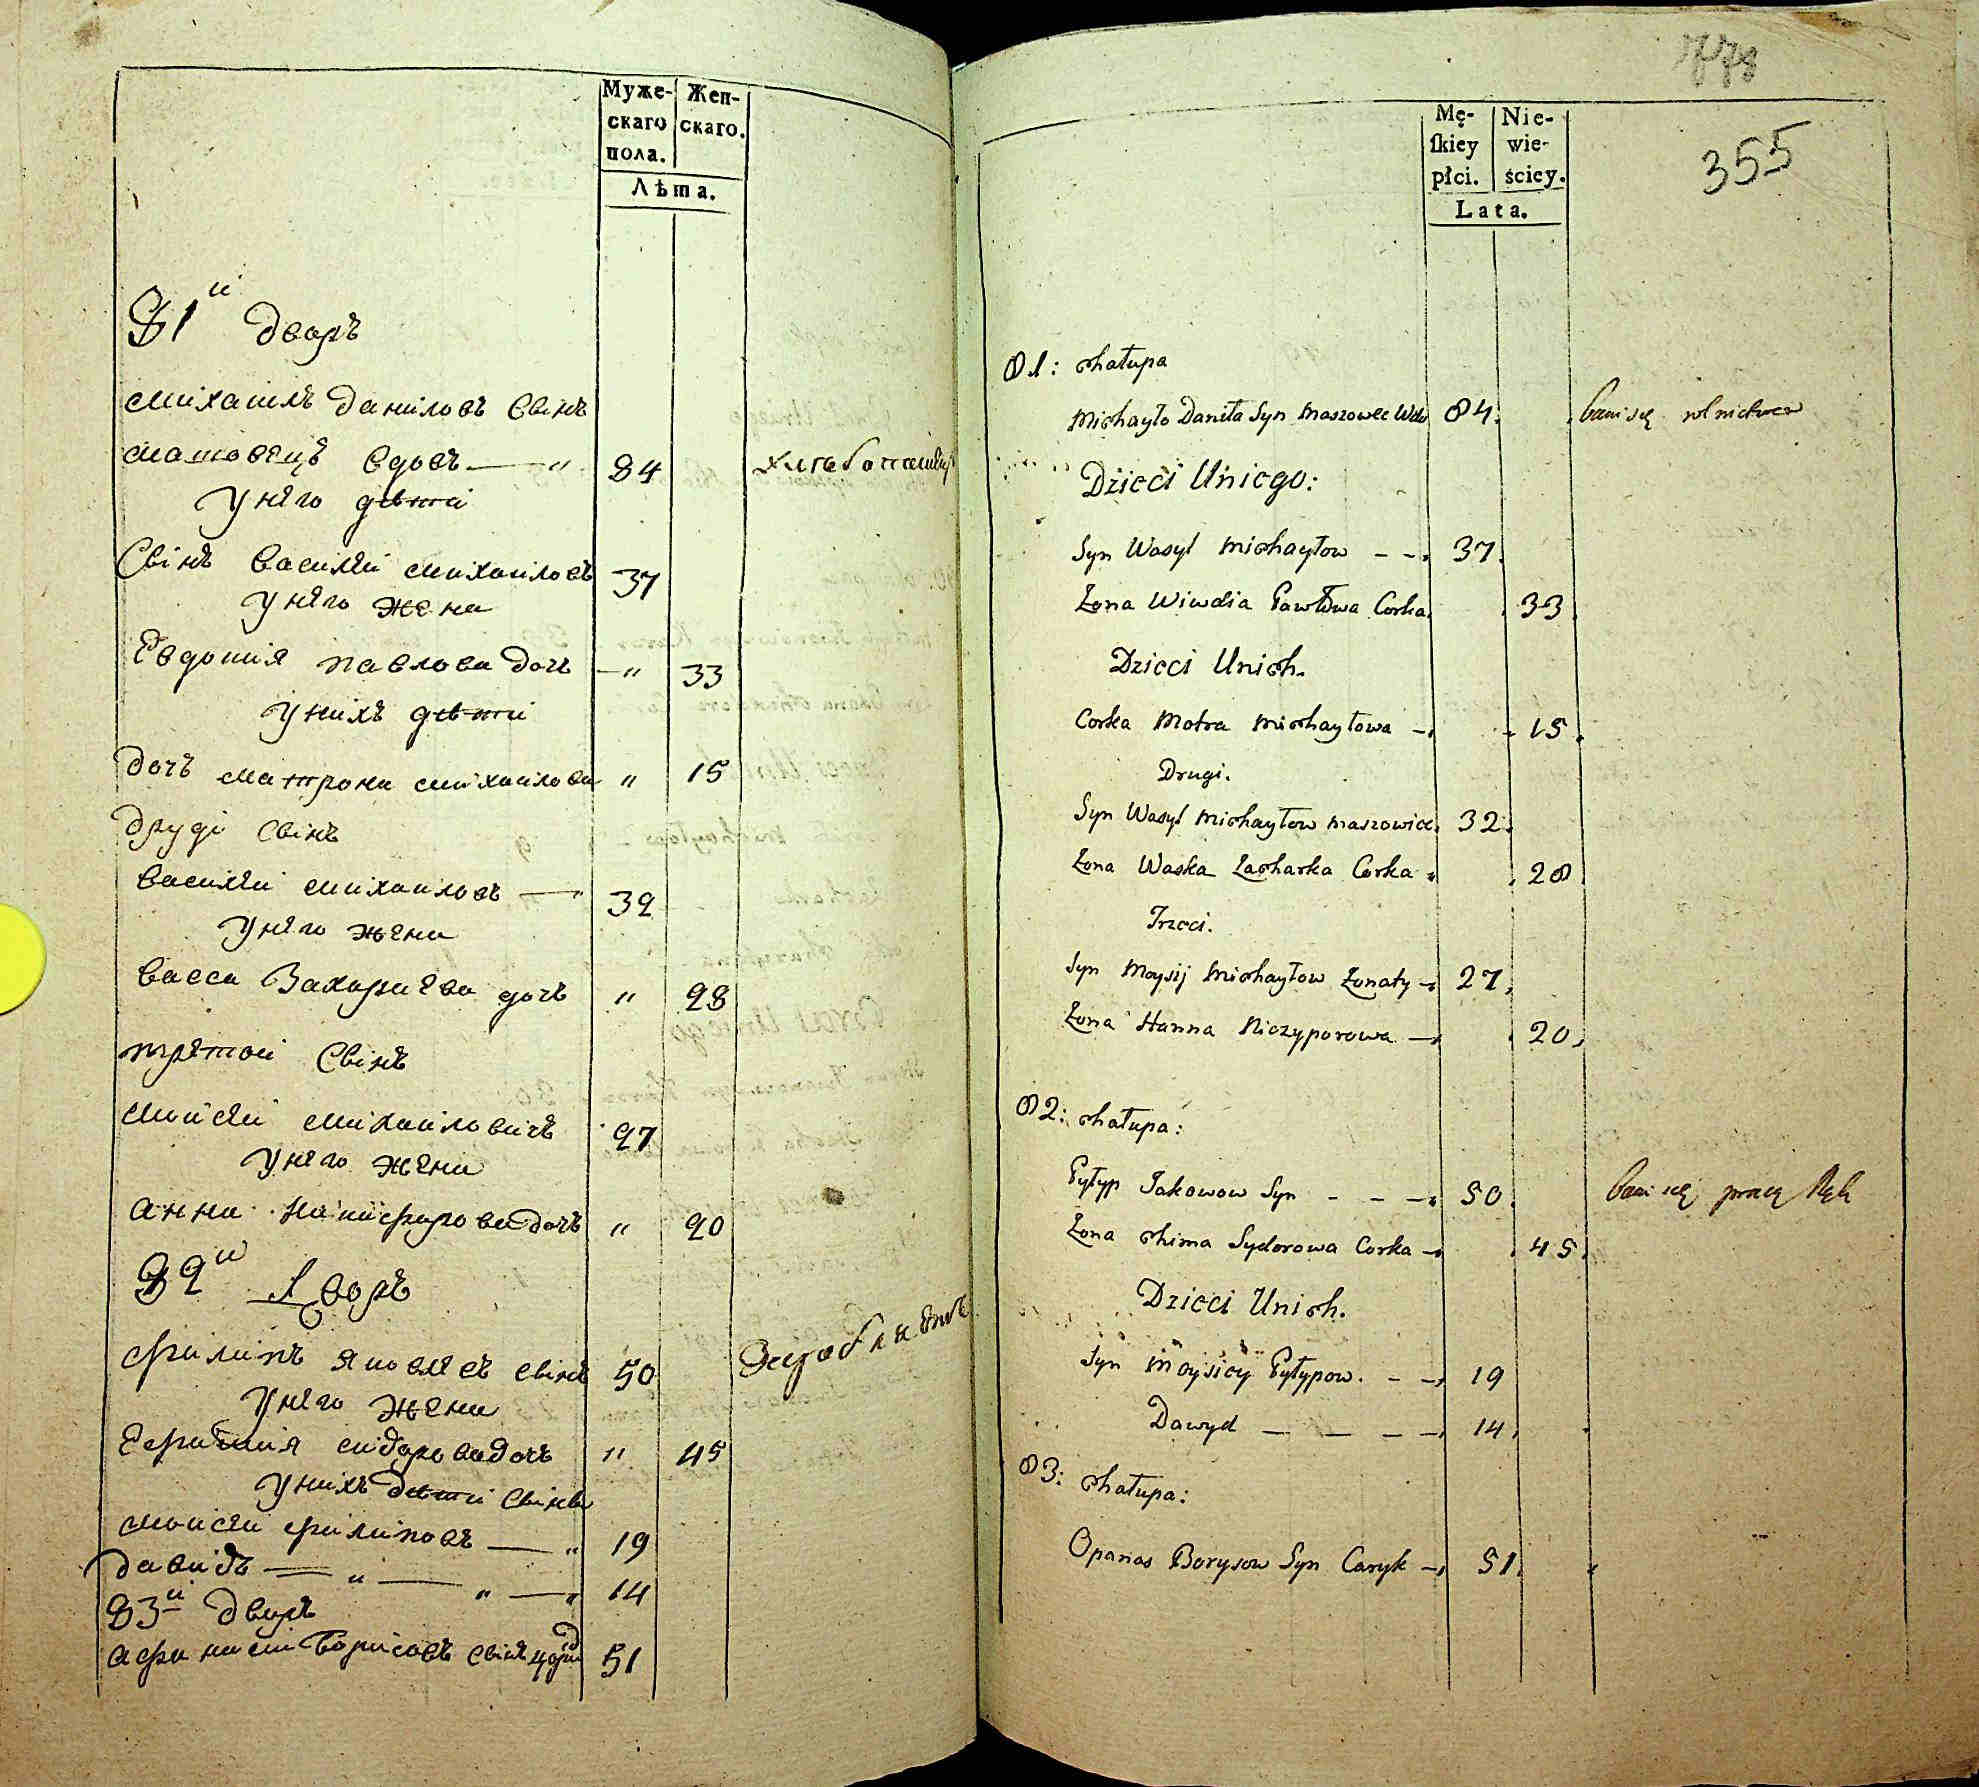 Муже-
скаго
пола.
Жен-
скаго.
Лѣта.
81й дворъ
михаилъ даниловъ свінъ
машовецъ вдовъ — " 84 хлебопашецъ
у него дети
Свінъ василей михаиловъ 37
у него жена
Евдокия павлова дочъ — " 33
у нихъ дети
дочъ матрона михаилова " 15
другі свінъ
василей михаиловъ — " 32
у него жена
васса Захариева дочъ " 28
третой свінъ
мойсей михаиловичъ 27
у него жена
анна никифорова дочъ " 20
82й дворъ
филипъ яковлевъ свінъ 50
у него жена
Ефимия сидорова дочъ " 45
у нихъ дети свінві
мойсей филиповъ — " 19
давидъ — " — " — " 14
83й дворъ
афанасий Борисовъ свінъ 51
778
355
Mę-
ſkiey
płci.
Nie-
wie-
ściey.
Lata.
81: chałupa
Michayło Daniła Syn Maszowec Wdo 84. bawi się rolnictwem
Dzieci Uniego:
Syn Wasyl Michayłow - - 37.
Żona Wiwdia Pawłowa Corka. 33.
Dzieci Unich.
Corka Motra Michayłowa - 15.
Drugi.
Syn Wasyl Michayłow Maszowiec. 32.
Żona Waska Zacharka Corka 28.
Trzeci.
Syn Moysij Michayłow Żonaty - 27.
Żona Hanna Niczyporowa - 20.
82: chałupa:
Pyłyp Jakowow Syn - - - 50. bawi się pracą Rąk
Żona chima Sydorowa Corka - 45.
Dzieci Unich.
Syn Moysiey Pyłypow. - - 19
Dawyd - - - - 14.
83: chałupa:
Opanas Borysow Syn Caryk - 51.